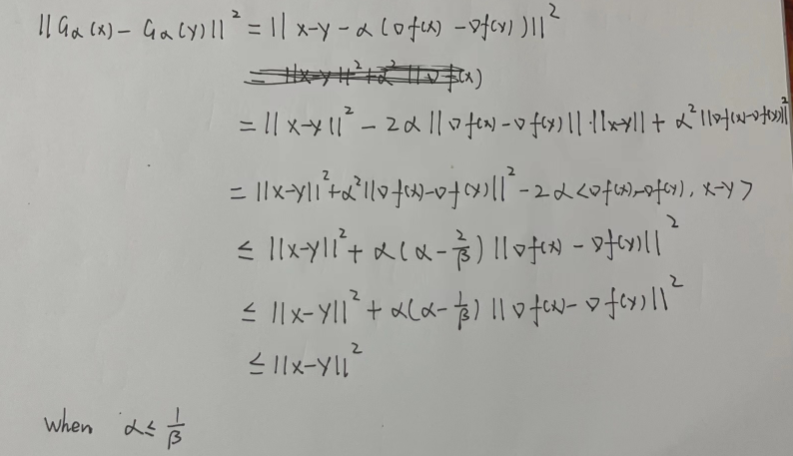 ||Gα(x) - Gα(y)||² = ||x-y - α(∇f(x) - ∇f(y))||²
= ||x-y||² + α² ||∇f(x)
= ||x-y||² - 2α ||∇f(x) - ∇f(y)|| · ||x-y|| + α² ||∇f(x) - ∇f(y)||²
= ||x-y||² + α² ||∇f(x) - ∇f(y)||² - 2α <∇f(x) - ∇f(y), x-y>
≤ ||x-y||² + α(α - 2/β) ||∇f(x) - ∇f(y)||²
≤ ||x-y||² + α(α - 1/β) ||∇f(x) - ∇f(y)||²
≤ ||x-y||²
when α ≤ 1/β